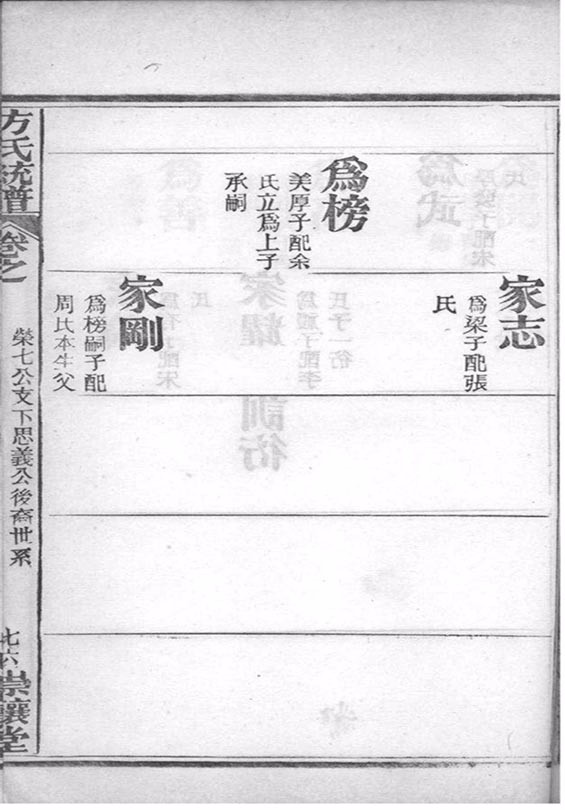 爲榜
美厚子配余
氏立爲上子
承嗣
家志
爲梁子配張
氏
家剛
爲榜嗣子配
周氏本生父
方氏統譜
卷之
榮七公支下思義公後裔世系
七六
崇讓堂